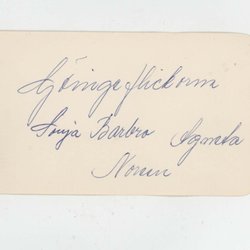 Göingeflickorna
Sonja Barbro Agneta
Noreen